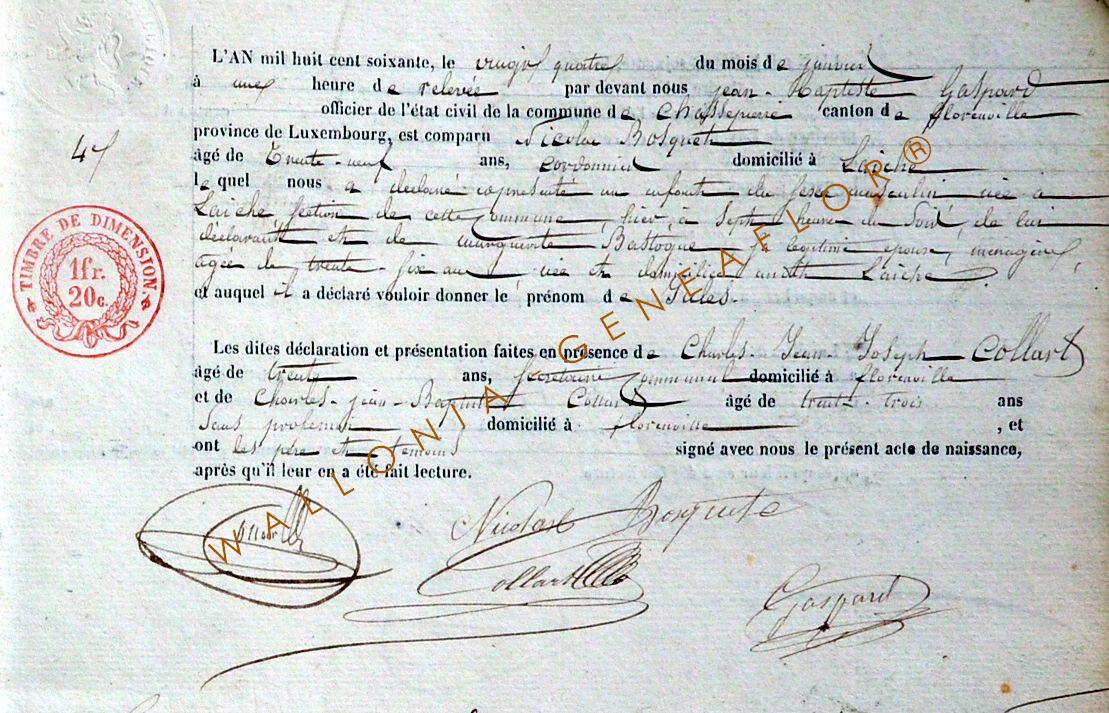 L'AN mil huit cent soixante, le vingt quatre du mois de janvier
à une heure de relevée par devant nous jean-Baptiste Gaspard
officier de l'état civil de la commune de Chassepierre canton de florenville
province de Luxembourg, est comparu Nicolas Bosquet
âgé de Trente-neuf ans, cordonnier domicilié à Laiche
le quel nous a déclaré et présenté un enfant du sexe masculin née à
Laiche, section de cette commune, hier, à sept heure du soir, de lui
déclarant et de marguerite Bastogne légitime épouse, ménagère,
agée de trente-six ans née et domiciliée audit Laiche
et auquel il a déclaré vouloir donner le prénom de Jules.
4
TIMBRE DE DIMENSION.
1 fr.
20 c.
Les dites déclaration et présentation faites en présence de Charles-Jean-Joseph Collart
âgé de trente ans, secretaire communal domicilié à florenville
et de Charles-jean-Baptiste Collart âgé de trente-trois ans
sans profession domicilié à florenville, et
ont les père et témoins signé avec nous le présent acte de naissance,
après qu'il leur en a été fait lecture.
Nicolas Bosquet
Collart
Gaspard
WALLONIA - GENEAFLOR®